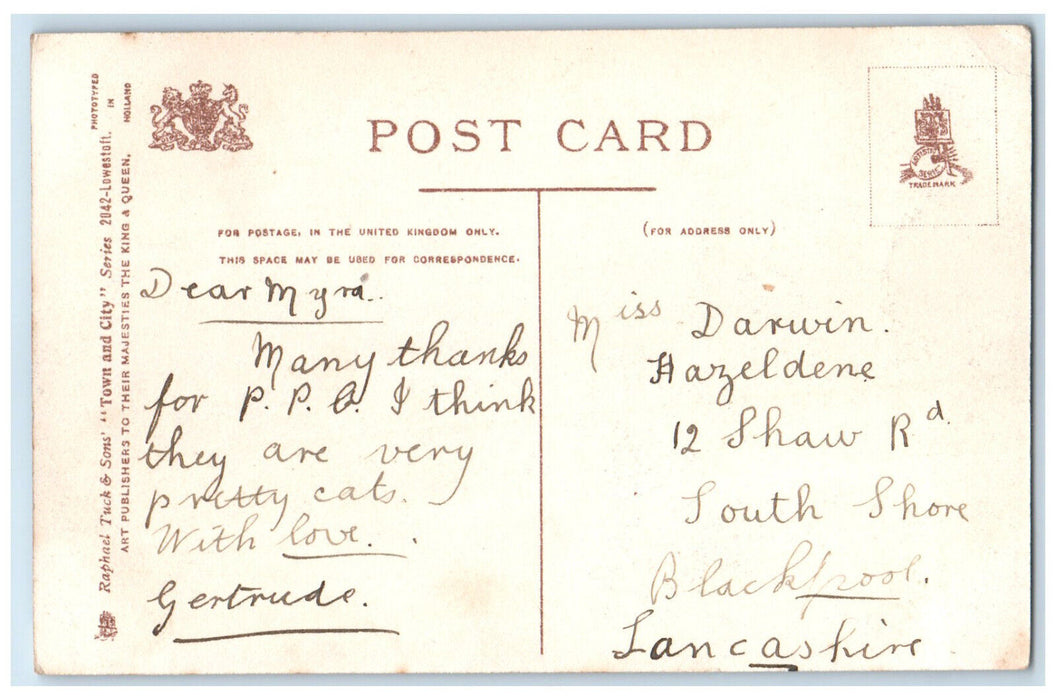 POST CARD
FOR POSTAGE, IN THE UNITED KINGDOM ONLY.
THIS SPACE MAY BE USED FOR CORRESPONDENCE.
(FOR ADDRESS ONLY)
ARTISTIC
SERIES
TRADE MARK
PHOTOTYPED
IN
HOLLAND
Raphael Tuck & Sons' "Town and City" Series 2042-Lowestoft.
ART PUBLISHERS TO THEIR MAJESTIES THE KING & QUEEN.
Dear Myra.
Many thanks
for P. P. C. I think
they are very
pretty cats.
With love.
Gertrude.
Miss Darwin.
Hazeldene
12 Shaw Rd
South Shore
Blackpool.
Lancashire